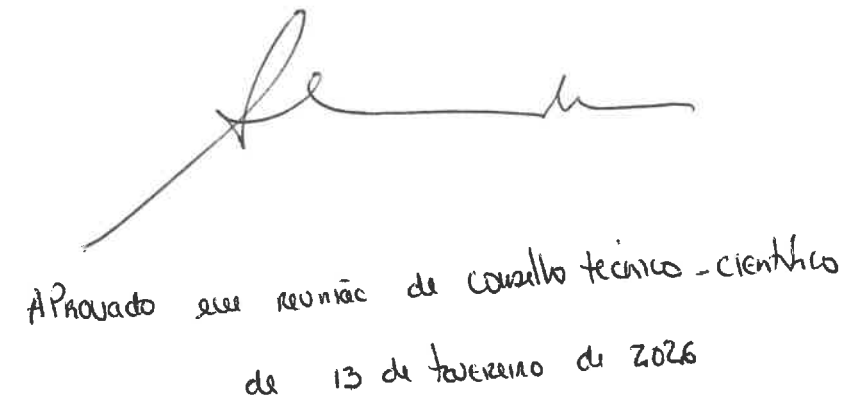 Aprovado em reunião de conselho técnico-científico
de 13 de fevereiro de 2026